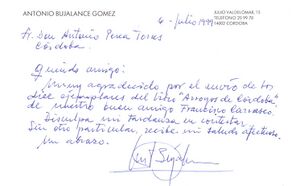 ANTONIO BUJALANCE GOMEZ
JULIO VALDELOMAR, 15
TELEFONO 25 99 70
14002 CORDOBA
4-Julio 1999
Sr. Don Antonio Perea Torres
Córdoba.
Querido amigo:
Muy agradecido por el envío de los
diez ejemplares del libro "Arroyos de Córdoba"
de nuestro buen amigo Francisco Carrasco.
Disculpa mi tardanza en contestar.
Sin otro particular, recibe mi saludo afectuoso.
Un abrazo.